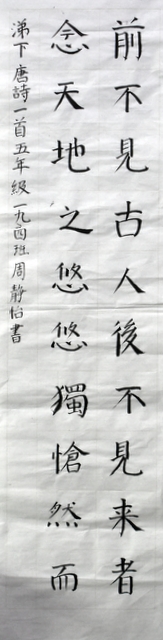 前不見古人後不見来者
念天地之悠悠獨愴然而
涕下 唐詩一首五年級一九四班周静怡書